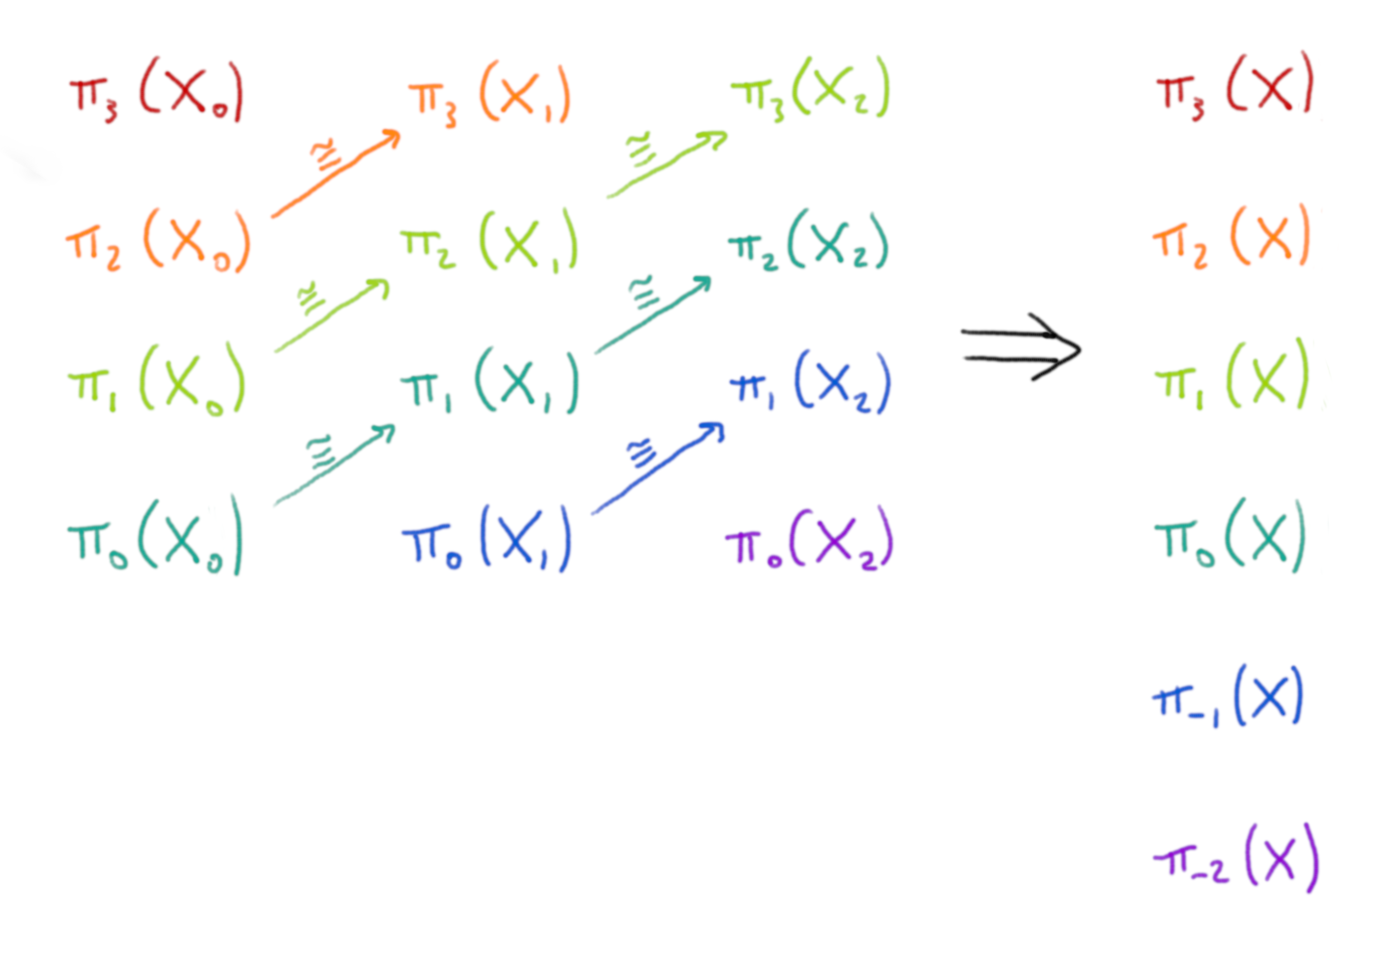 π₃(X₀) π₃(X₁) π₃(X₂) π₃(X)
≅ ≅
π₂(X₀) π₂(X₁) π₂(X₂) π₂(X)
≅ ≅
π₁(X₀) π₁(X₁) π₁(X₂) ⇒ π₁(X)
≅ ≅
π₀(X₀) π₀(X₁) π₀(X₂) π₀(X)
π₋₁(X)
π₋₂(X)